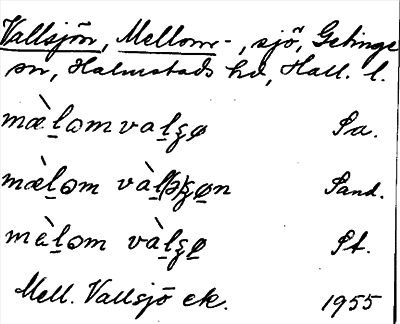 Vallsjön, Mellom-, sjö, Getinge
sn, Halmstads hd, Hall. l.
mæ̀l̠ɷm val̠ʒø Pa.
mæ̀l̠ɷm và l̠(ə)ʒø̠n Sand.
mæ̀l̠ɷm vàl̠ʒø̠ St.
Mell. Vallsjö ek. 1955